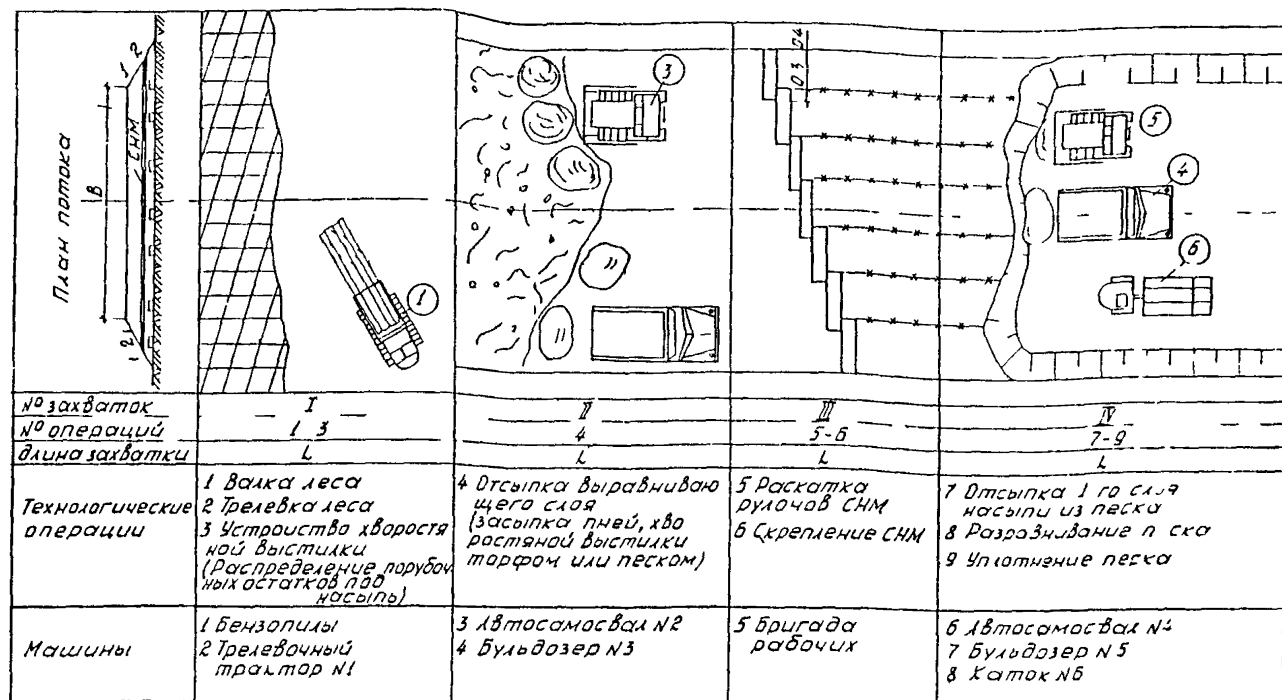 План потока
1 2
В
СНМ
1 2
1
3
0.3 0.4
5
4
6
№ захваток
I
II
III
IV
№ операций
1 3
4
5-6
7-9
Длина захватки
L
L
L
L
Технологические
операции
1 Валка леса
2 Трелевка леса
3 Устроиство хворостя
ной выстилки
(Распределение порубоч
ных остатков под
насыпь)
4 Отсыпка выравниваю
щего слоя
(засыпка пней, хво
ростяной выстилки
торфом или песком)
5 Раскатка
рулонов СНМ
6 Скрепление СНМ
7 Отсыпка 1 го слоя
насыпи из песка
8 Разравнивание п ска
9 Уплотнение песка
Машины
1 Бензопилы
2 Трелевочный
трактор №1
3 Автосамосвал №2
4 Бульдозер №3
5 Бригада
рабочих
6 Автосамосвал №4
7 Бульдозер №5
8 Каток №6